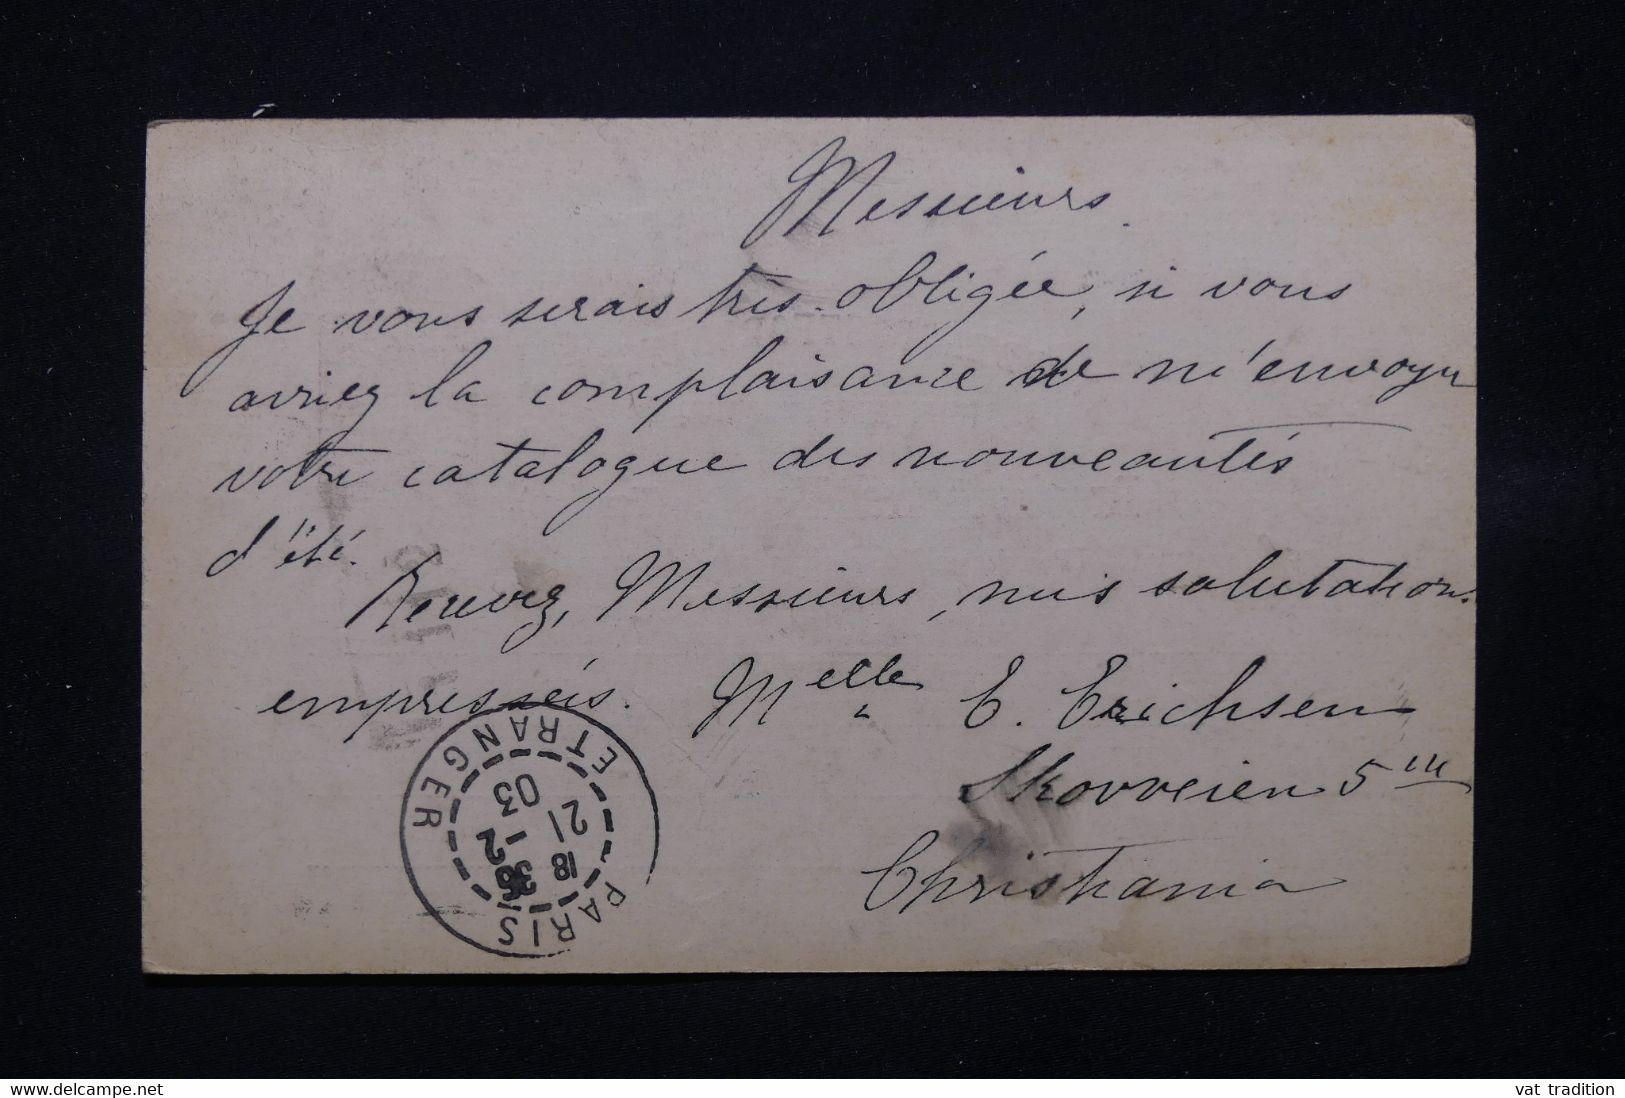 Messieurs.
Je vous serais très obligée, si vous
avriez la complaisance de m'envoyer
votre catalogue des nouveautés
d'été.
Recevez, Messieurs, mes salutations
empressées. Melle E. Erichsen
Skovveien 5
Christiania
PARIS ETRANGER
18
21
03
vat tradition
www.delcampe.net